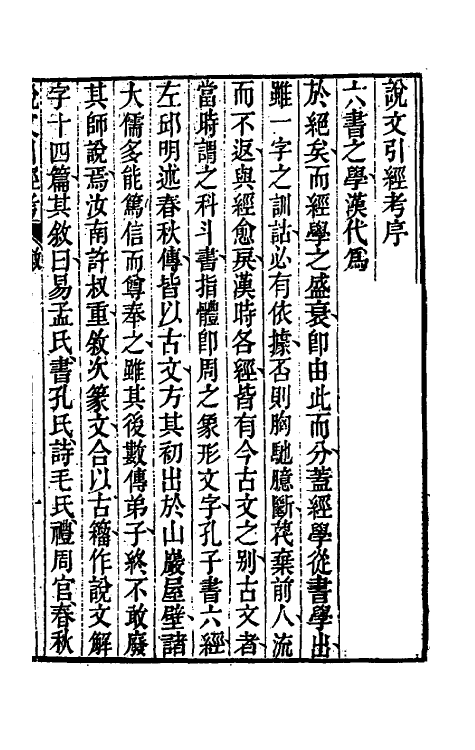 說文引經考序
六書之學漢代爲
於絕矣而經學之盛衰卽由此而分蓋經學從書學出
雖一字之訓詁必有依據否則胸馳臆斷茷棄前人流
而不返與經愈戾漢時各經皆有今古文之別古文者
當時謂之科斗書指體卽周之象形文字孔子書六經
左邱明述春秋傳皆以古文方其初出於山巖屋壁諸
大儒多能篤信而尊奉之雖其後數傳弟子終不敢廢
其師說焉汝南許叔重敘次篆文合以古籀作說文解
字十四篇其敘曰易孟氏書孔氏詩毛氏禮周官春秋
說文引經考
一